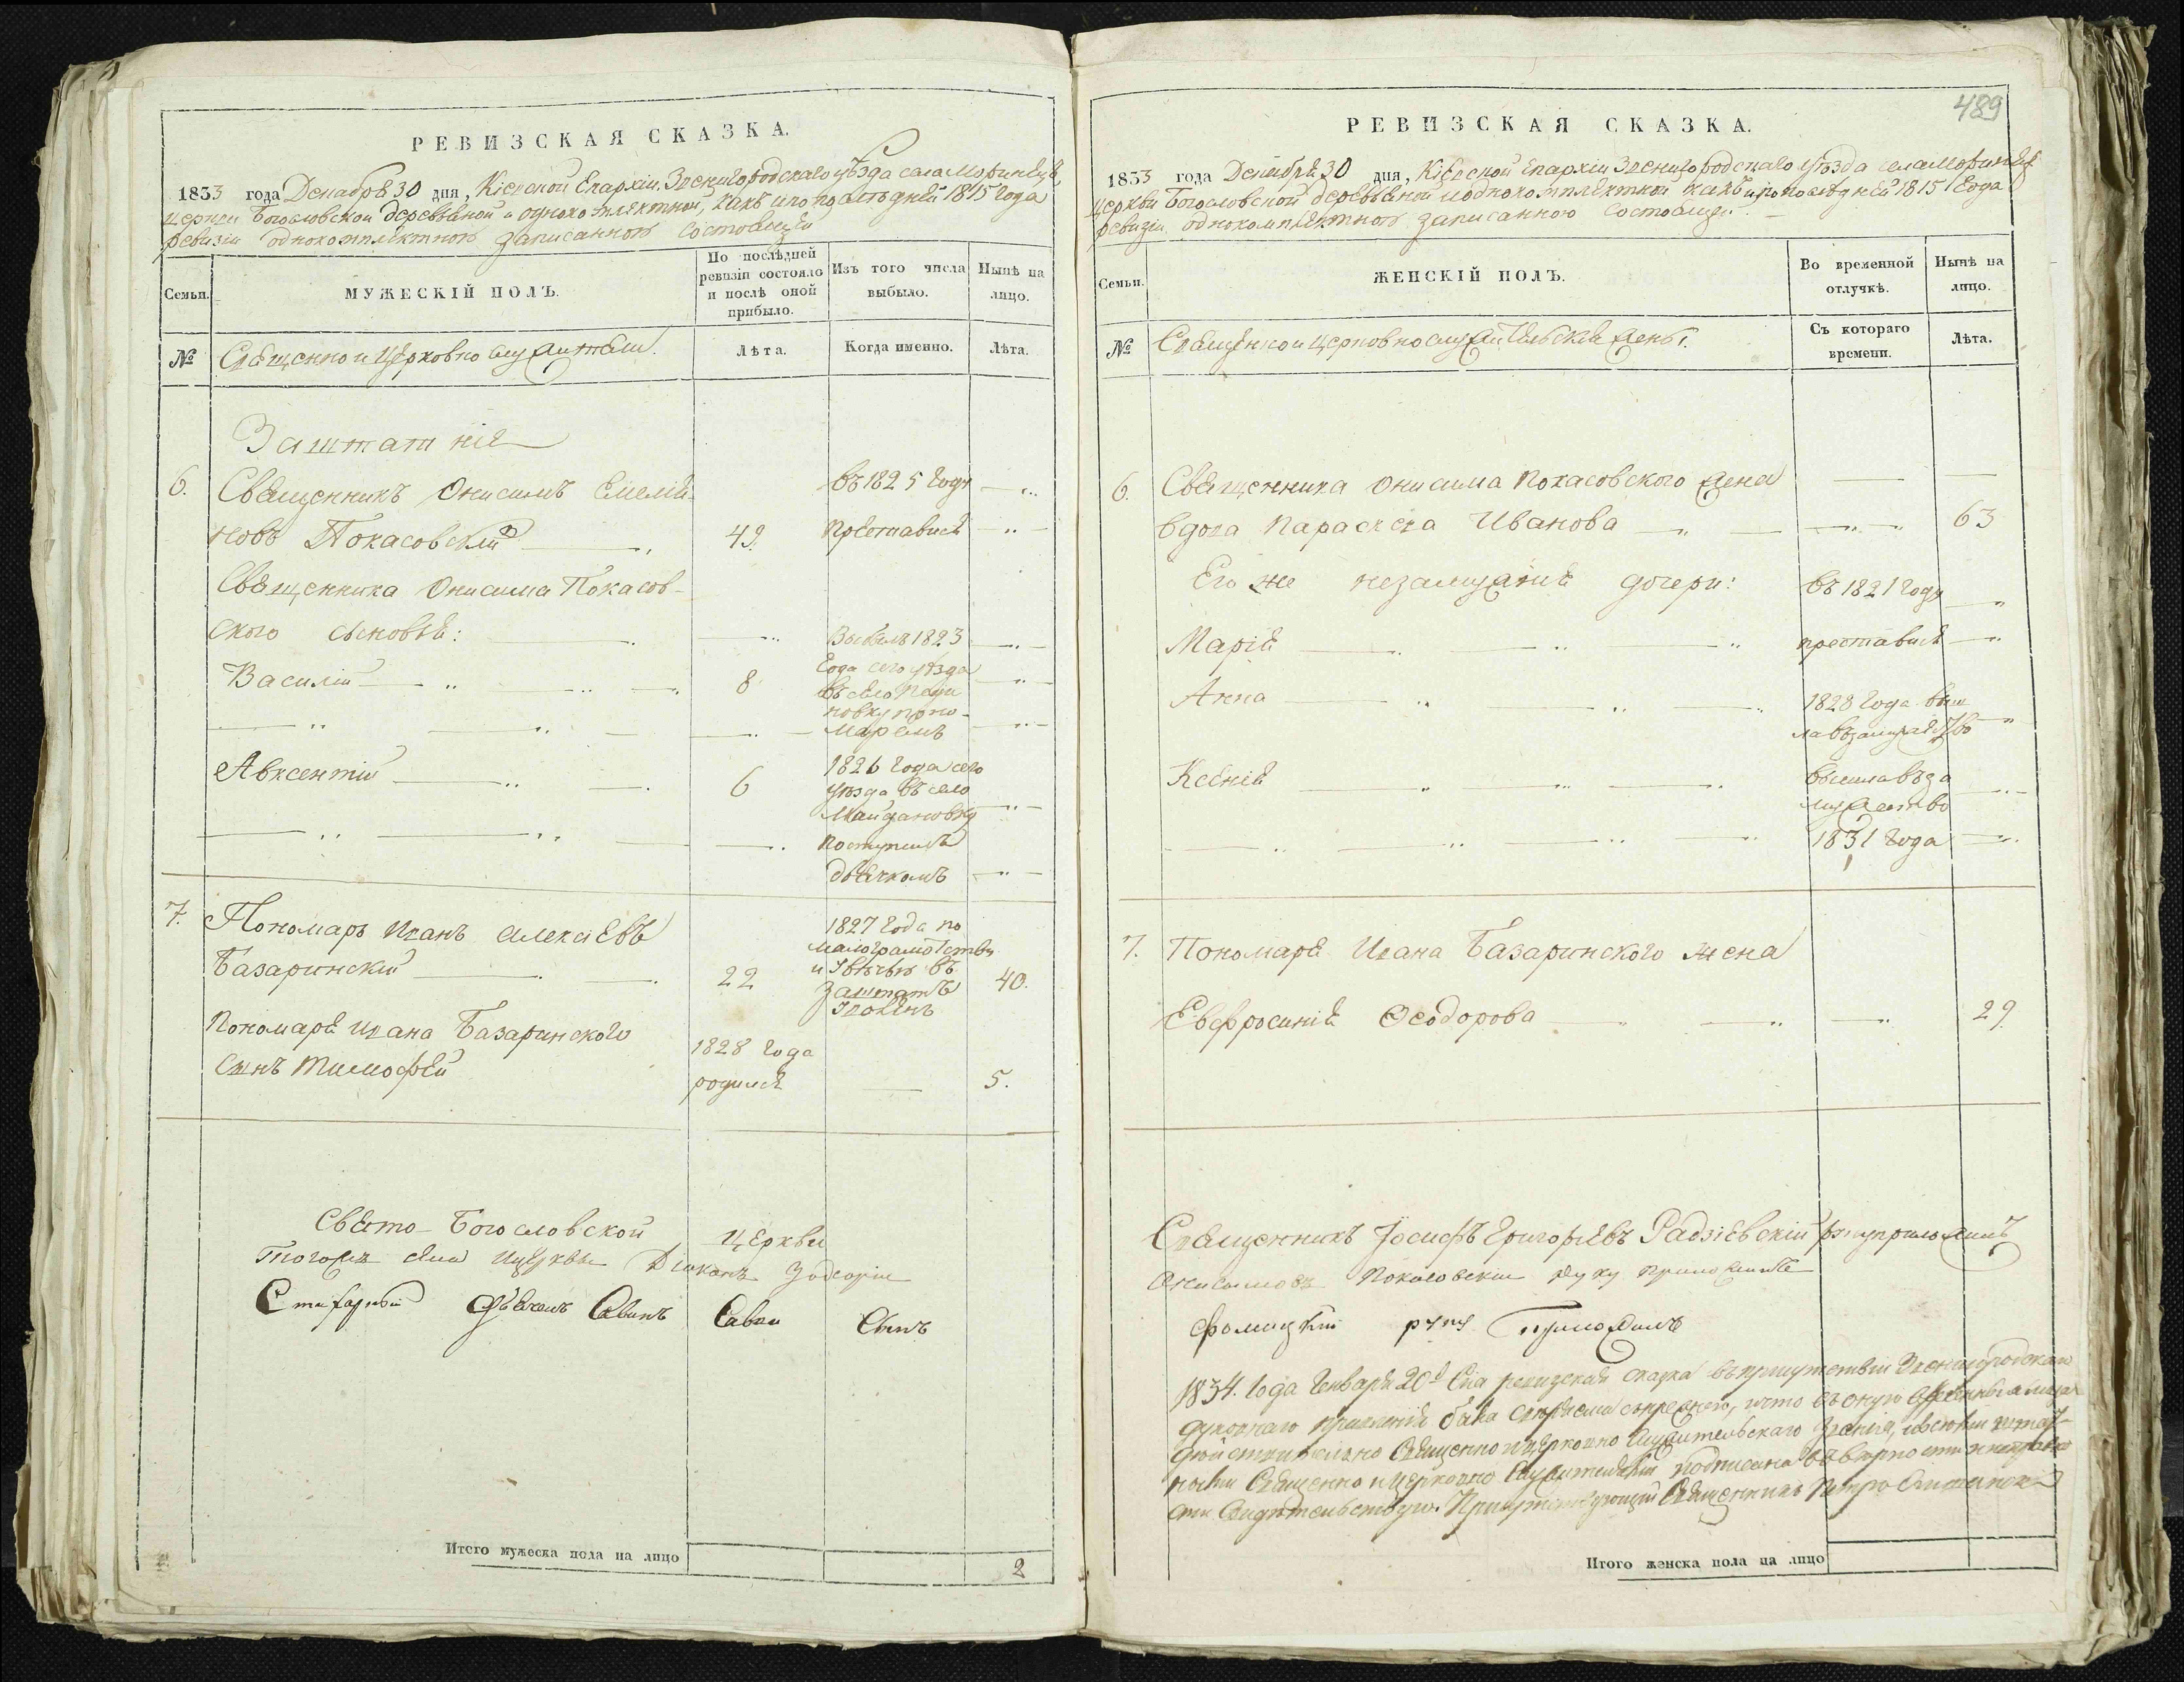 РЕВИЗСКАЯ СКАЗКА.
1833 года Декабря 30 дня, Кіевской Епархіи Звенигородскаго уѣзда села Моринецъ
церкви Богословской деревяной и однокомплектной, какъ и по послѣдней 1815 года
ревизіи однокомплектною записанною состоящей
Семьи.
МУЖЕСКІЙ ПОЛЪ.
По послѣдней ревизіи состояло и послѣ оной прибыло.
Изъ того числа выбыло.
Нынѣ на лицо.
№
Священно и церковно служители.
Лѣта.
Когда именно.
Лѣта.
Заштатніе
6. Священникъ Онисимъ Емелія- въ 1825 году
новъ Покасовскій 49. преставися
Священника Онисима Покасов-
ского сыновья: Выбылъ 1823
Василій 8 года сего уѣзда
въ село
новку поно-
маремъ
Авксентій 6 1826 года сего
уѣзда въ село
Майдановку
поступилъ
дьячкомъ
7. Пономарь Иванъ Алексѣевъ 1827 года по
малограмотству
Базаринскій 22 и увѣчью въ 40.
заштатъ
уволенъ
Пономаря Ивана Базаринского 1828 года
сынъ Тимофей родился 5.
Свято-Богословской церкви
тогожъ села церкви Діаконъ
дьячокъ Савинъ Савы сынъ
Итого мужеска пола на лицо 2
489
РЕВИЗСКАЯ СКАЗКА.
1833 года Декабря 30 дня, Кіевской Епархіи Звенигородскаго уѣзда села Моринецъ
церкви Богословской деревяной и однокомплектной какъ и по послѣдней 1815 года
ревизіи однокомплектною записанною состоящей.
Семьи.
ЖЕНСКІЙ ПОЛЪ.
Во временной отлучкѣ.
Нынѣ на лицо.
№
Священно и церковнослужительскія жены.
Съ котораго времени.
Лѣта.
6. Священника Онисима Покасовского жена
вдова Параскева Иванова 63
Его же незамужнія дочери: въ 1821 году
Марія преставися
Анна 1828 года выш
ла въ замужество
Ксенія вышла въ за
мужество
1831 года
7. Пономаря Ивана Базаринского жена
Евфросинія Ѳеодорова 29.
Священникъ Іосифъ Григорьевъ Радзіевскій руку приложилъ
Покасовскій руку приложилъ
руку приложилъ
1834. года Генваря 20д Сіа ревизская сказка въ присутствіи Звенигородскаго
духовнаго правленія была что въ оную
дѣйствительно священно и церковно служительскаго званія,
священно и церковно служителями подписана въ вѣрности
свидѣтельствую. Присутствующій Священникъ Петро
Итого женска пола на лицо